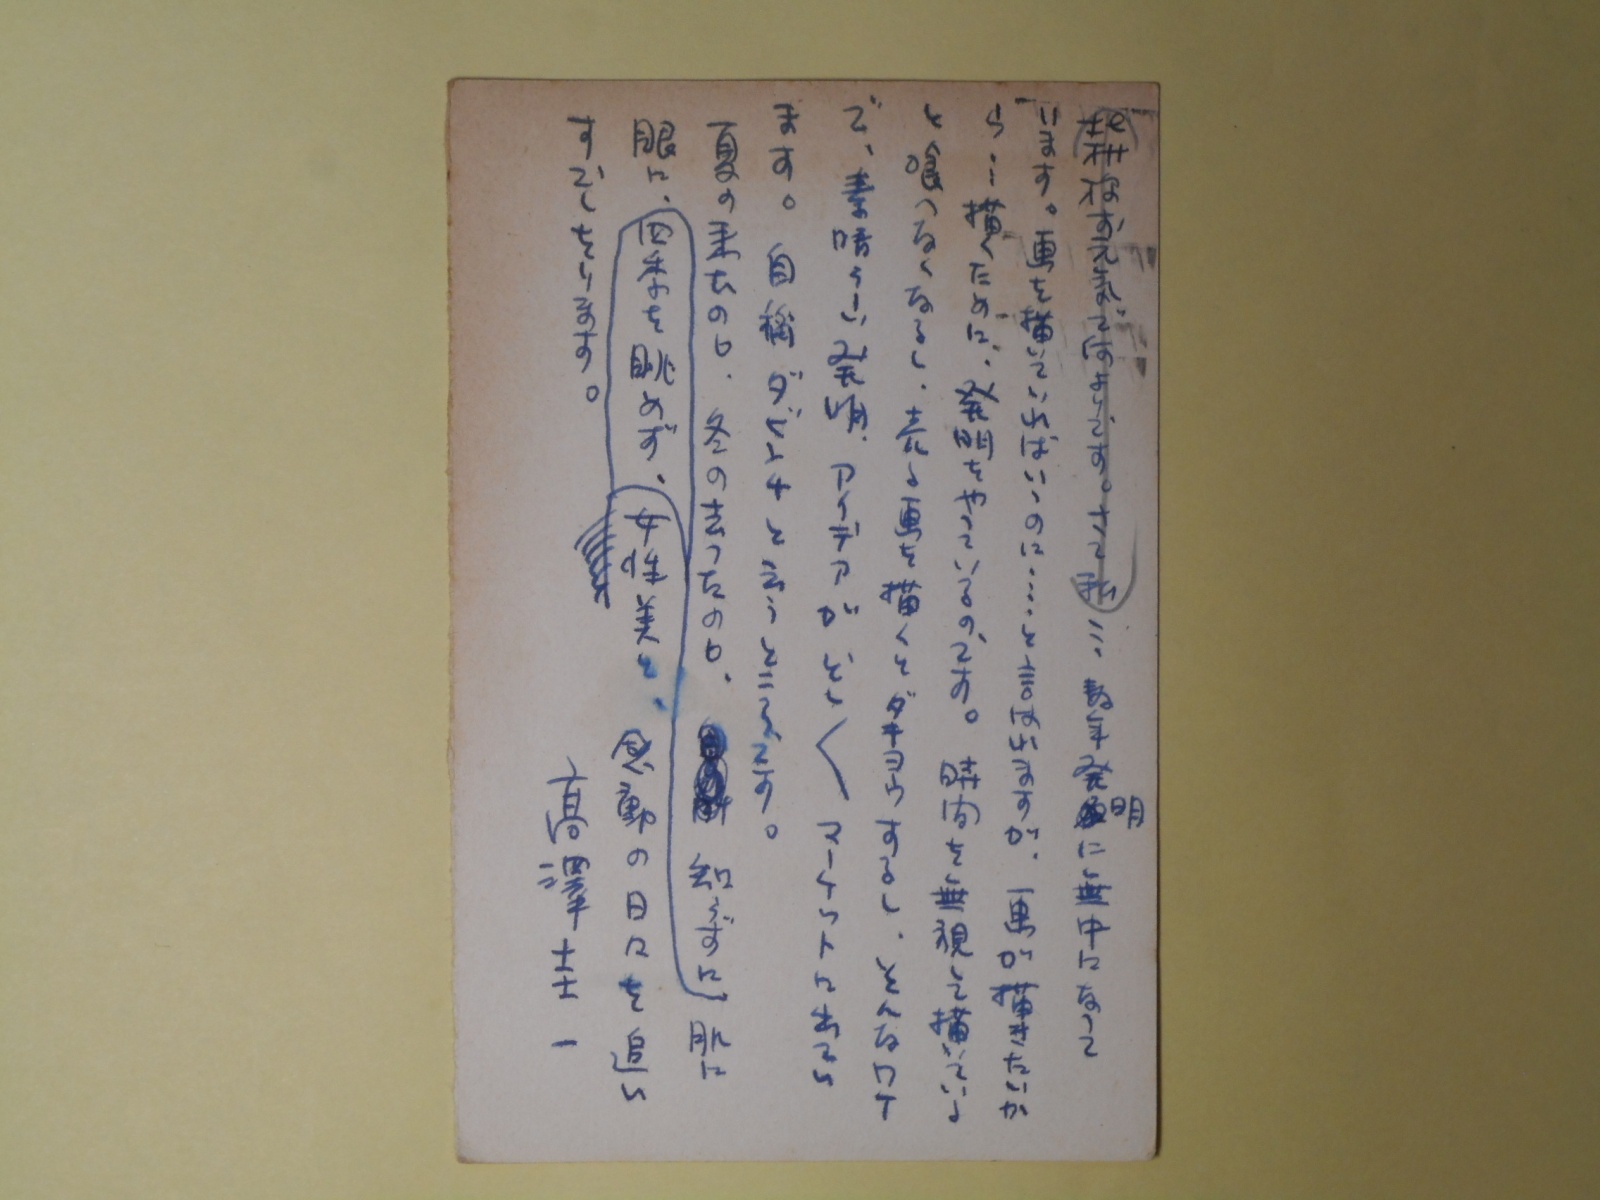 耕様お元気でなによりです。さて私…数年発明に無中になって
います。画を描いていればいいのに……と言われますが、画が描きたいか
ら…描くために、発明をやっているのです。時間を無視して描いている
と喰へなくなるし、売る画を描くとダキヨウするし、そんなワケ
で、素晴らしい発明、アイデアがどしどしマーケットに出てい
ます。自称ダビンチと云うところです。
夏の来たのも、冬の去ったのも、知らずに、肌に
眼に、四季を眺めず、女性美と、感動の日々を追い
すごしています。
高澤圭一